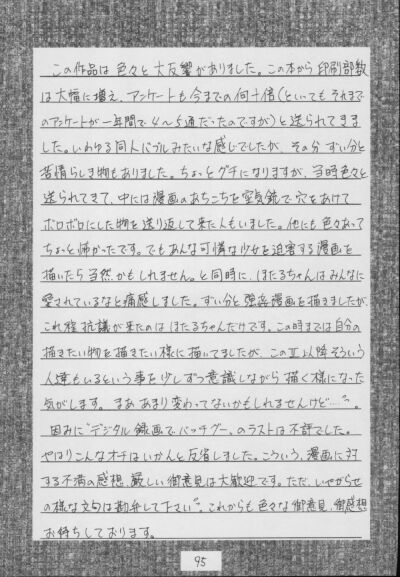 この作品は色々と大反響がありました。この本から印刷部数
は大幅に増え、アンケートも今までの何十倍(といってもそれまで
のアンケートが一年間で4〜5通だったのですが)と送られてきま
した。いわゆる同人バブルみたいな感じでしたが、その分ずい分と
苦情らしき物もありました。ちょっとグチになりますが、当時色々と
送られてきて、中には漫画のあちこちを空気銃で穴をあけて
ボロボロにした物を送り返して来た人もいました。他にも色々あって
ちょっと怖かったです。でもあんな可憐な少女を迫害する漫画を
描いたら当然かもしれません。と同時に、ほたるちゃんはみんなに
愛されているなと痛感しました。ずい分と強姦漫画を描きましたが、
これ程抗議が来たのはほたるちゃんだけです。この時までは自分の
描きたい物を描きたい様に描いてましたが、このⅡ以降そういう
人達もいるという事を少しずつ意識しながら描く様になった
気がします。まああまり変わってないかもしれませんけど…。
因みに"デジタル録画でバッチグー、のラストは不評でした。
やはりこんなオチはいかんと反省しました。こういう、漫画に対
する不満の感想、厳しい御意見は大歓迎です。ただ、いやがらせ
の様な文句は勘弁して下さい。これからも色々な御意見、御感想
お待ちしております。
95